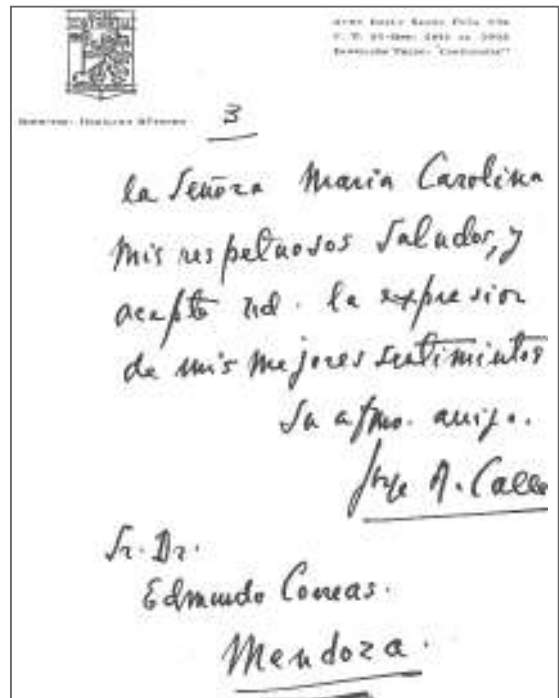 3
la Señora Maria Carolina
mis respetuosos saludos, y
acepte Ud. la expresion
de mis mejores sentimientos
Su afmo. amigo.
Jorge A. Calle
Sr. Dr.
Edmundo Correas.
Mendoza.